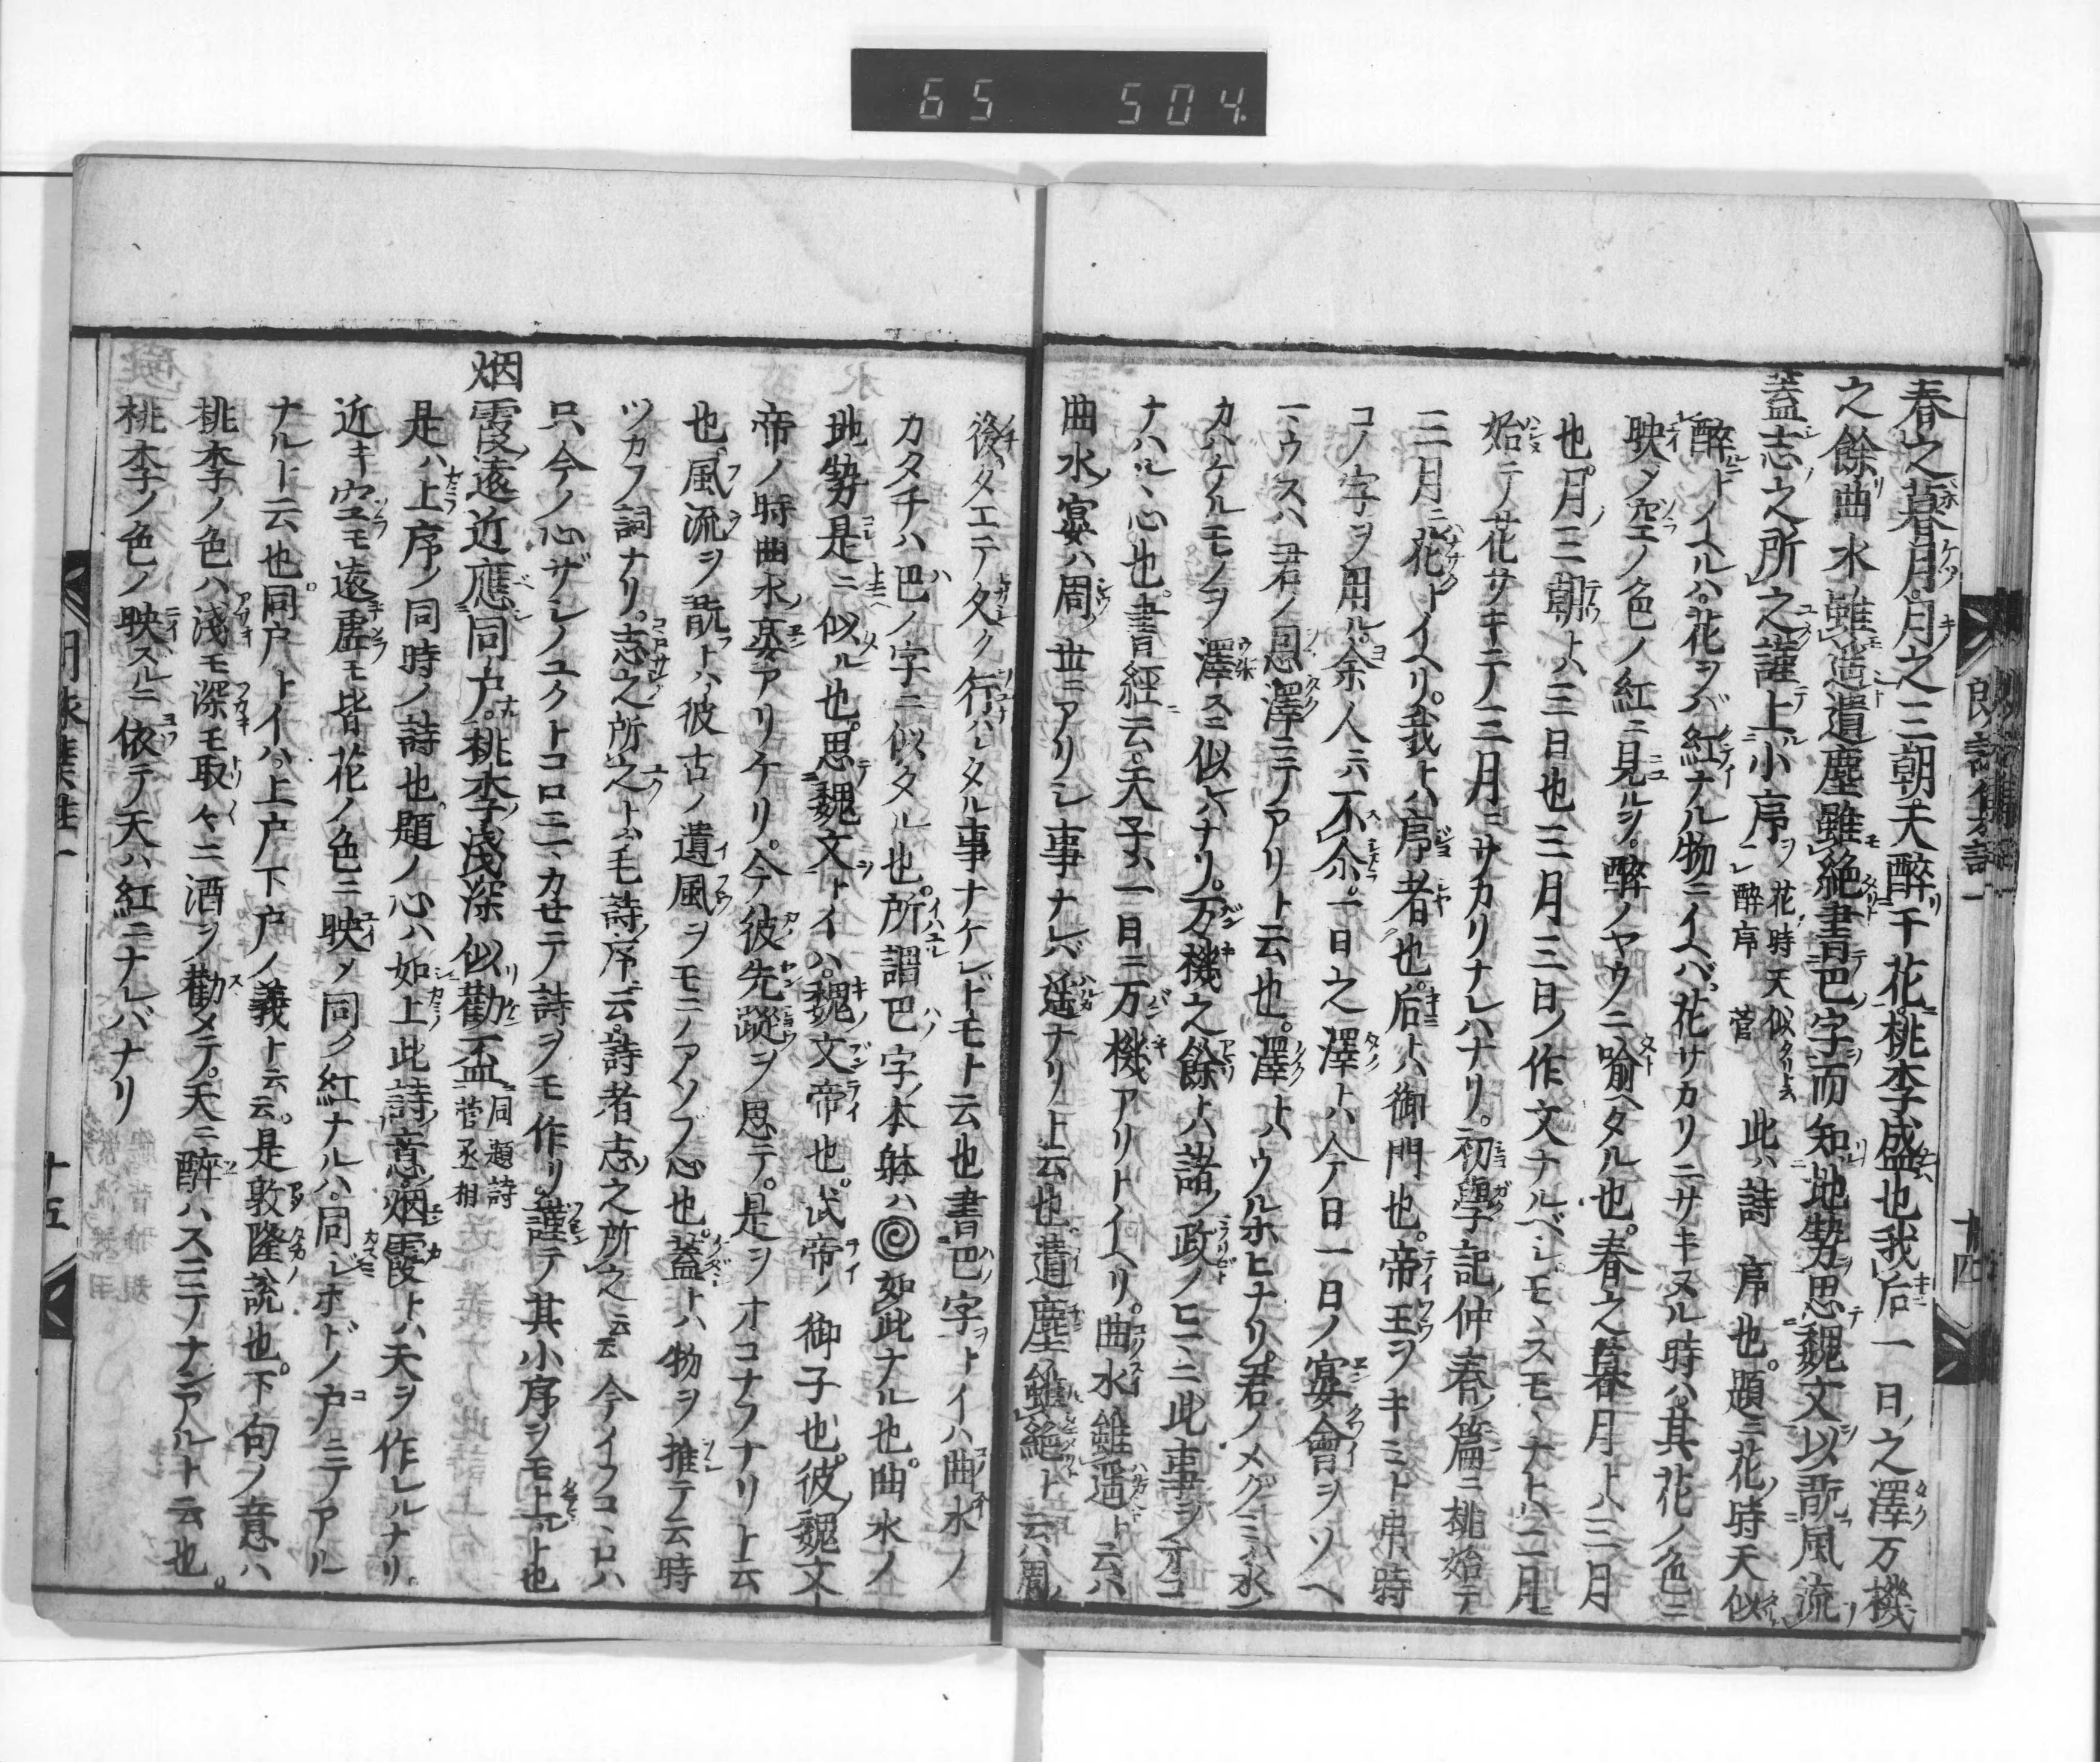 65 504.
春之暮月月之三朝天醉于花桃李盛也我后一日之澤万機
之餘曲水雖遥遺塵雖絶書巴字而知地勢思魏文以翫風流
蓋志之所之謹上小序 花時天似醉序 菅 此ハ詩ノ序也題ニ花ノ時天似
醉トイヘルハ花ヲバ紅ナル物ニイヘバ花サカリニサキヌル時ハ其花ノ色ニ
映メ空ノ色ノ紅ニ見ルヲ醉ノヤウニ喩ヘタル也春之暮月トハ三月
也月ノ三朝トハ三日也三月三日ノ作文ナルベシモヽスモヽナトハ二月ニ
始テ花サキテ三月ニサカリナレハナリ初學記仲春ノ篇ニ桃始テ
三月ニ花サクトイヘリ我トハ序者也后トハ御門也帝王ヲキミト申時
コノ字ヲ用ル余人ニハ不介一日之澤トハ今日一日ノ宴會ヲソヘ
ヽウスハ君ノ恩澤ニテアリト云也澤トハウルホヒナリ君ノメグミハ水ノ
カハケルモノヲ澤スニ似レハナリ万機之餘トハ諸ノ政ノヒマニ此事ヲオコ
ナハルヽ心也書経ニ云天子ハ一日ニ万機アリトイヘリ曲水雖遥ト云ハ
曲水ノ宴ハ周ノ世ニアリシ事ナレバ遥ナリト云也遺塵雖絶ト云ハ周ノ
後タエテ久ク行ハレタル事ナケレドモト云也書巴字トイハ曲水ノ
カタチハ巴ノ字ニ似タル也所謂巴ノ字ノ本躰ハ◎如此ナル也曲水ノ
地勢是ニ似ル也思魏文トイハ魏ノ文帝也武帝ノ御子也彼ノ魏文
帝ノ時曲水ノ宴アリケリ今彼先蹤ヲ思テ是ヲオコナフナリト云
也風流ヲ翫トハ彼古ノ遺風ヲモテアソブ心也蓋トハ物ヲ推テ云時
ツカフ詞ナリ志之所之トハ毛詩ノ序ニ云詩者志之所之云云今イフコヽロハ
只今ノ心ザシノユクトコロニマカセテ詩ヲモ作リ謹テ其小序ヲモ上ト也
烟霞遠近應同戸桃李浅深似勸盃 同題詩 菅丞相
是ハ上序ノ同時ノ詩也題ノ心ハ如上此詩ノ意烟霞トハ天ヲ作レルナリ
近キ空モ遠虚モ皆花ノ色ニ映メ同ク紅ナルハ同シホドノ戸ニテアル
ナルト云也同戸トイハ上戸下戸ノ義ト云云是敦隆説也下句ノ意ハ
桃李ノ色ハ浅モ深モ取々ニ酒ヲ勸メテ天ニ醉ハスニテナンアルト云也
桃李ノ色ノ映スルニ依テ天ハ紅ニナレバナリ